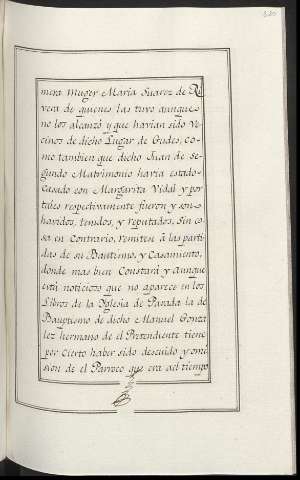 mera Muger Maria Suarez de Ri
vera de quienes las tuvo aunque
no los alcanzó y que havian sido Ve
cinos de dicho Lugar de Gudes, co
mo tambien que dicho Juan de Se
gundo Matrimonio havia estado
Casado con Margarita Vidal y por
tales respectivamente fueron y son
havidos, tenidos, y reputados, sin co
sa en Contrario, remitese à las parti
das de su Bautismo, y Casamiento,
donde mas bien Constará y aunque
está noticioso que no aparece en los
Libros de la Yglesia de Parada la de
Bauptismo de dicho Manuel Gonza
lez hermano de el Pretendiente tiene
por Cierto haber sido descuido y omi
sion de el Parroco que era al tiempo